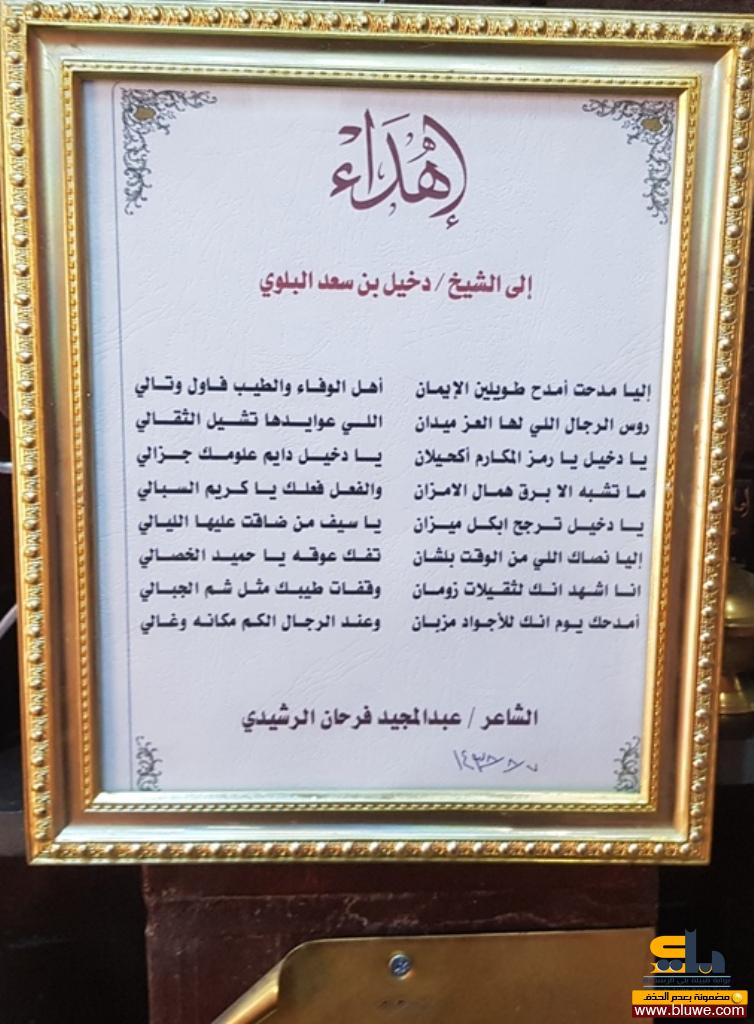 إهْدَاء
إلى الشيخ / دخيل بن سعد البلوي
إليا مدحت أمدح طويلين الإيمان أهل الوفاء والطيب فاول وتالي
روس الرجال اللي لها العز ميدان اللي عوايدها تشيل الثقالي
يا دخيل يا رمز المكارم أكحيلان يا دخيل دايم علومك جزالي
ما تشبه الا برق همال الامزان والفعل فعلك يا كريم السبالي
يا دخيل ترجح ابكل ميزان يا سيف من ضاقت عليها الليالي
إليا نصاك اللي من الوقت بلشان تفك عوقه يا حميد الخصالي
انا اشهد انك لثقيلات زومان وقفات طيبك مثل شم الجبالي
أمدحك يوم انك للأجواد مزبان وعند الرجال الكم مكانه وغالي
الشاعر / عبدالمجيد فرحان الرشيدي
بلي
مضمونة بعدم الحذف
www.bluwe.com